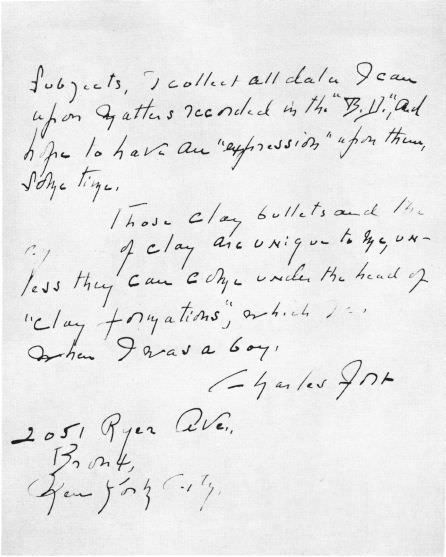 subjects, I collect all data I can
upon matters recorded in the "B.D.", and
hope to have an "expression" upon them,
some time.
Those clay bullets and the
of clay are unique to me, un-
less they can come under the head of
"clay formations", which I
when I was a boy.
Charles Fort
2051 Ryer Ave.,
Bronx,
New York City.